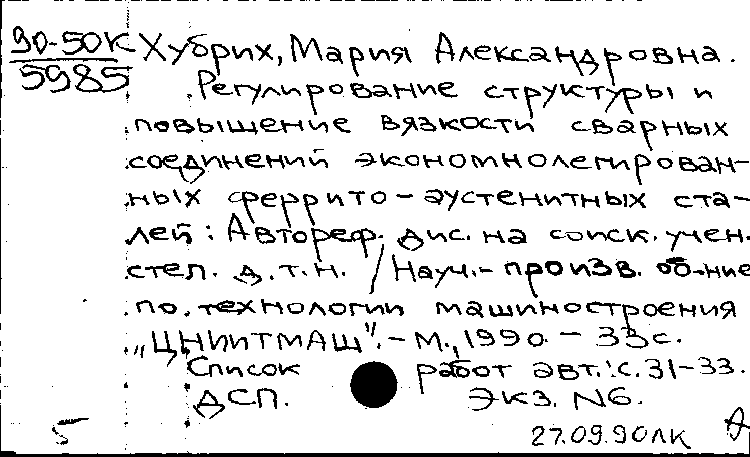 90-50К Хубрих, Мария Александровна.
5985 Регулирование структуры и
повышение вязкости сварных
соединений экономнолегирован-
ных феррито-аустенитных ста-
лей: Автореф. дис. на соиск. учен.
степ. д.т.н. / Науч.-произв. об-ние
по технологии машиностроения
"ЦНИИТМАШ".-М., 1990.-33с.
Список работ авт.: с.31-33.
ДСП. Экз. N6.
5 27.09.90ЛК А